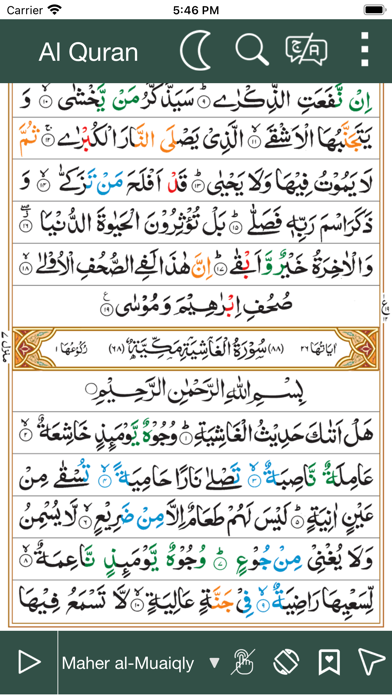 Carrier 5:46 PM
Al Quran
اِنْ نَّفَعَتِ الذِّكْرٰىؕ ۹ سَيَذَّكَّرُ مَنْ يَّخْشٰىۙ ۱۰ وَ
يَتَجَنَّبُهَا الْاَشْقَىۙ ۱۱ الَّذِىْ يَصْلَى النَّارَ الْكُبْرٰىۚ ۱۲ ثُمَّ
لَا يَمُوْتُ فِيْهَا وَلَا يَحْيٰىؕ ۱۳ قَدْ اَفْلَحَ مَنْ تَزَكّٰىۙ ۱۴ وَ
ذَكَرَ اسْمَ رَبِّهٖ فَصَلّٰىؕ ۱۵ بَلْ تُؤْثِرُوْنَ الْحَيٰوةَ الدُّنْيَا ۱۶
وَالْاٰخِرَةُ خَيْرٌ وَّاَبْقٰىؕ ۱۷ اِنَّ هٰذَا لَفِى الصُّحُفِ الْاُوْلٰىۙ ۱۸
صُحُفِ اِبْرٰهِيْمَ وَمُوْسٰى ۱۹
اٰيَاتُهَا ۲۶ (۸۸) سُوْرَةُ الْغَاشِيَةِ مَكِّيَّةٌ (۶۸) رُكُوْعُهَا ۱
بِسْمِ اللهِ الرَّحْمٰنِ الرَّحِيْمِ
هَلْ اَتٰىكَ حَدِيْثُ الْغَاشِيَةِؕ ۱ وُجُوْهٌ يَّوْمَىِٕذٍ خَاشِعَةٌۙ ۲
عَامِلَةٌ نَّاصِبَةٌۙ ۳ تَصْلٰى نَارًا حَامِيَةًۙ ۴ تُسْقٰى مِنْ
عَيْنٍ اٰنِيَةٍؕ ۵ لَيْسَ لَهُمْ طَعَامٌ اِلَّا مِنْ ضَرِيْعٍۙ ۶ لَّا يُسْمِنُ
وَلَا يُغْنِىْ مِنْ جُوْعٍؕ ۷ وُجُوْهٌ يَّوْمَىِٕذٍ نَّاعِمَةٌۙ ۸
لِّسَعْيِهَا رَاضِيَةٌۙ ۹ فِىْ جَنَّةٍ عَالِيَةٍۙ ۱۰ لَّا تَسْمَعُ فِيْهَا
منزل ۷
Maher al-Muaiqly